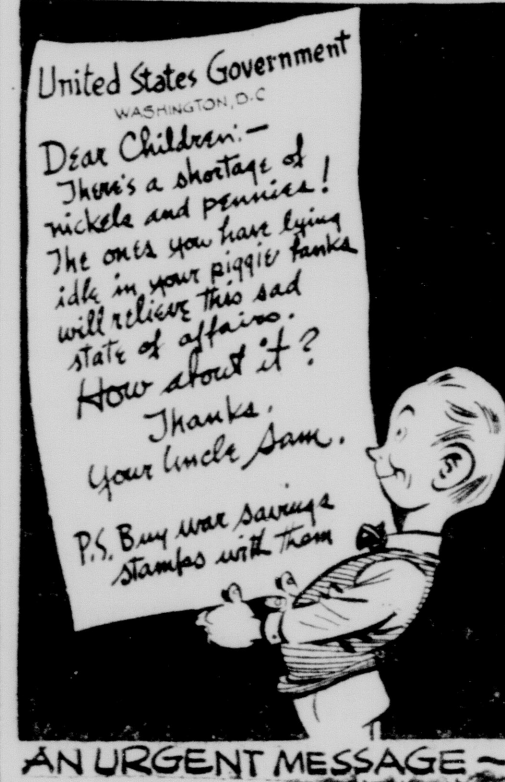 United States Government
WASHINGTON, D.C
Dear Children:—
There's a shortage of
nickels and pennies!
The ones you have lying
idle in your piggie banks
will relieve this sad
state of affairs.
How about it?
Thanks.
Your Uncle Sam.
P.S. Buy war savings
stamps with them
AN URGENT MESSAGE~